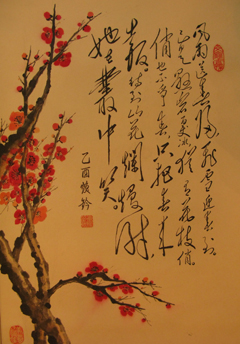 風雨送春歸飛雪迎春到
已是懸崖百丈冰猶有花枝俏
俏也不爭春只把春来
報待到山花爛漫时
她在叢中笑
乙酉